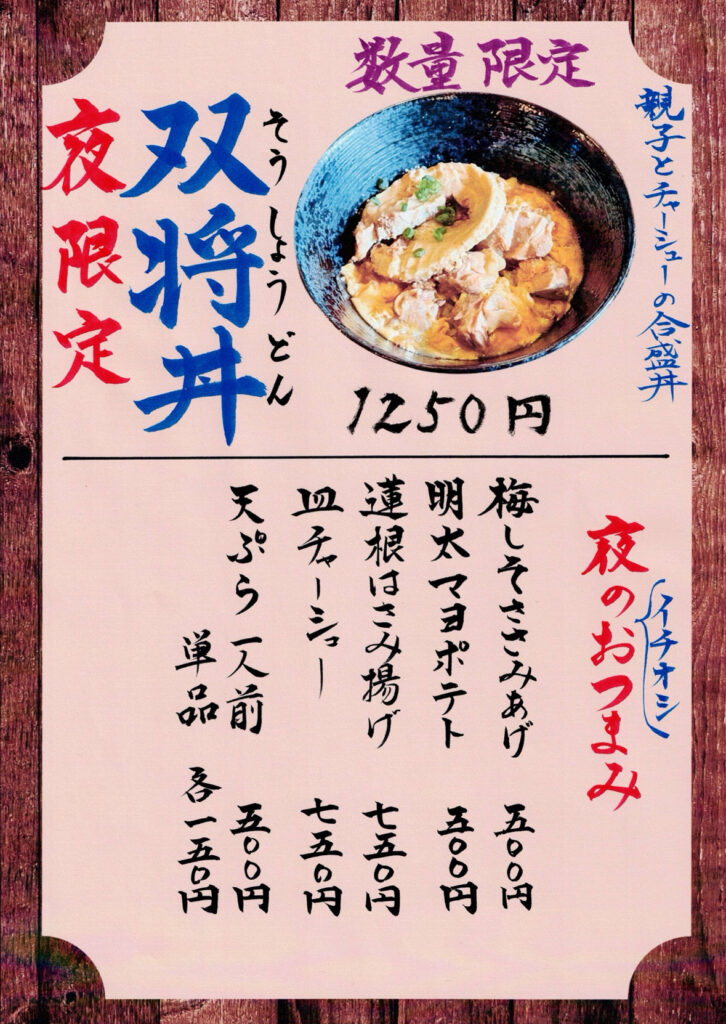 数量限定
親子とチャーシューの合盛丼
そうしょうどん
双将丼
夜限定
1250円
イチオシ
夜のおつまみ
梅しそささみあげ 五〇〇円
明太マヨポテト 五〇〇円
蓮根はさみ揚げ 七五〇円
皿チャーシュー 七五〇円
天ぷら 一人前 五〇〇円
単品 各一五〇円